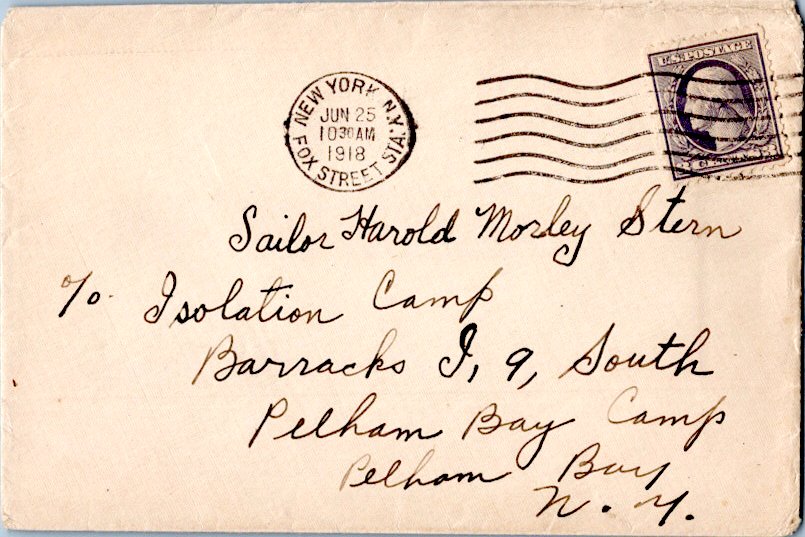 U.S. POSTAGE
NEW YORK N.Y.
JUN 25
1030AM
1918
FOX STREET STA.
Sailor Harold Morley Stern
c/o Isolation Camp
Barracks I, 9, South
Pelham Bay Camp
Pelham Bay
N. Y.